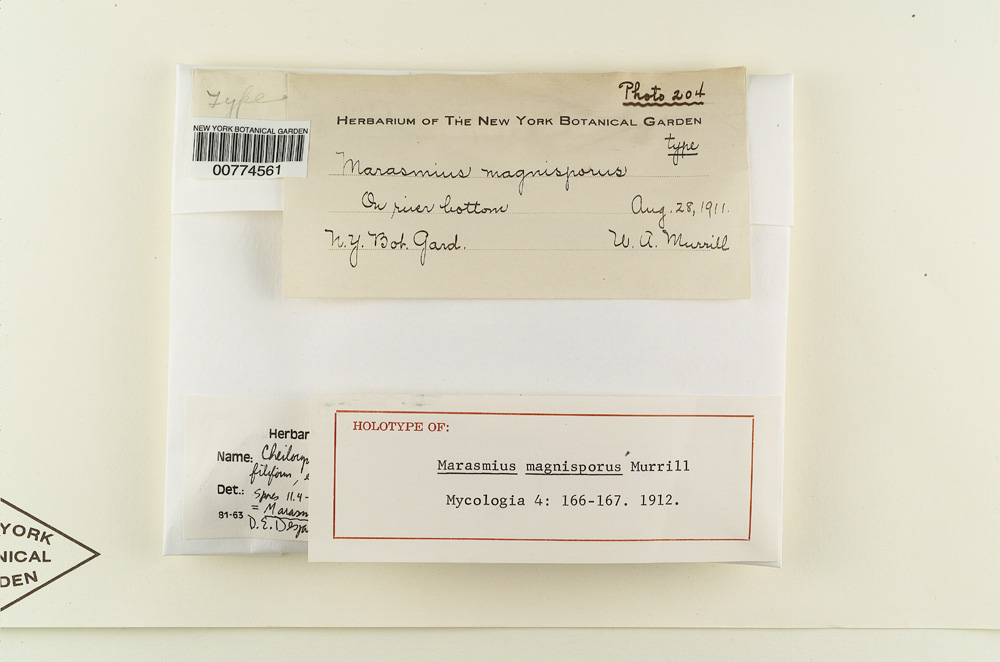 Type
NEW YORK BOTANICAL GARDEN
00774561
Photo 204
HERBARIUM OF THE NEW YORK BOTANICAL GARDEN
type
Marasmius magnisporus
On river bottom Aug. 28, 1911.
N.Y. Bot. Gard. W. A. Murrill
Herbar
Name:
filiform,
Det.: Spores 11.4-
= Marasm
81-63 D.E. Desja
HOLOTYPE OF:
Marasmius magnisporus Murrill
Mycologia 4: 166-167. 1912.
YORK
NICAL
DEN